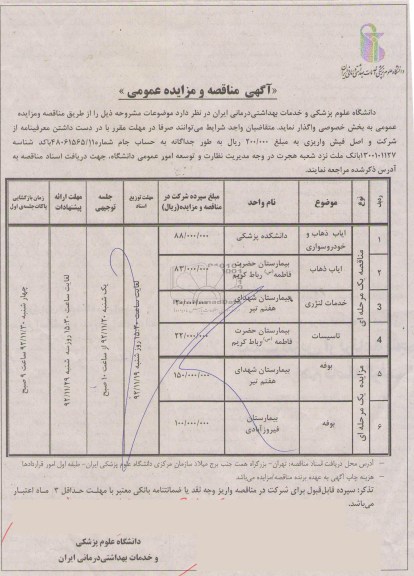 «آگهی مناقصه و مزایده عمومی»
دانشگاه علوم پزشکی و خدمات بهداشتی‌درمانی ایران در نظر دارد موضوعات مشروحه ذیل را از طریق مناقصه ومزایده
عمومی به بخش خصوصی واگذار نماید. متقاضیان واجد شرایط می‌توانند صرفا در مهلت مقرر با در دست داشتن معرفینامه از
شرکت و اصل فیش واریزی به مبلغ ۲۰۰/۰۰۰ ریال به طور جداگانه به حساب جام شماره۴۸۰۶۱۵۶۵/۱۱باکد شناسه
۱۳۰۰۱۰۱۱۲۷بانک ملت نزد شعبه هجرت در وجه مدیریت نظارت و توسعه امور عمومی دانشگاه، جهت دریافت اسناد مناقصه به
آدرس ذکرشده مراجعه نمایند.
ردیف نوع موضوع نام واحد مبلغ سپرده شرکت در مناقصه و مزایده(ریال) مهلت توزیع اسناد جلسه توجیهی مهلت ارائه پیشنهادات زمان بازگشایی پاکات‌جلسه‌ی اول
۱ ایاب ذهاب و خودروسواری دانشکده پزشکی ۸۸/۰۰۰/۰۰۰
۲ ایاب ذهاب بیمارستان حضرت فاطمه(س) رباط کریم ۸۳/۰۰۰/۰۰۰
۳ خدمات لنژری بیمارستان شهدای هفتم تیر
۴ تاسیسات بیمارستان حضرت فاطمه(س) رباط کریم ۲۲/۰۰۰/۰۰۰
۵ بوفه بیمارستان شهدای هفتم تیر ۱۵۰/۰۰۰/۰۰۰
۶ بوفه بیمارستان فیروزآبادی ۱۰۰/۰۰۰/۰۰۰
مناقصه یک مرحله ای
مزایده یک مرحله ای
لغایت ساعت ۱۵:۳۰ روز شنبه ۹۲/۱۱/۱۹
یک شنبه ۹۲/۱۱/۲۰ از ساعت ۱۰ صبح
لغایت ساعت ۱۵:۳۰ روزسه شنبه ۹۲/۱۱/۲۹
چهار شنبه ۹۲/۱۱/۳۰ ساعت ۹ صبح
– آدرس محل دریافت اسناد مناقصه: تهران- بزرگراه همت جنب برج میلاد سازمان مرکزی دانشگاه علوم پزشکی ایران- طبقه اول امور قراردادها
– هزینه چاپ آگهی به عهده برنده مناقصه/مزایده می‌باشد
تذکر: سپرده قابل‌قبول برای شرکت در مناقصه واریز وجه نقد یا ضمانتنامه بانکی معتبر با مهلت حداقل ۳ ماه اعتبار
می‌باشد.
دانشگاه علوم پزشکی
و خدمات بهداشتی‌درمانی ایران